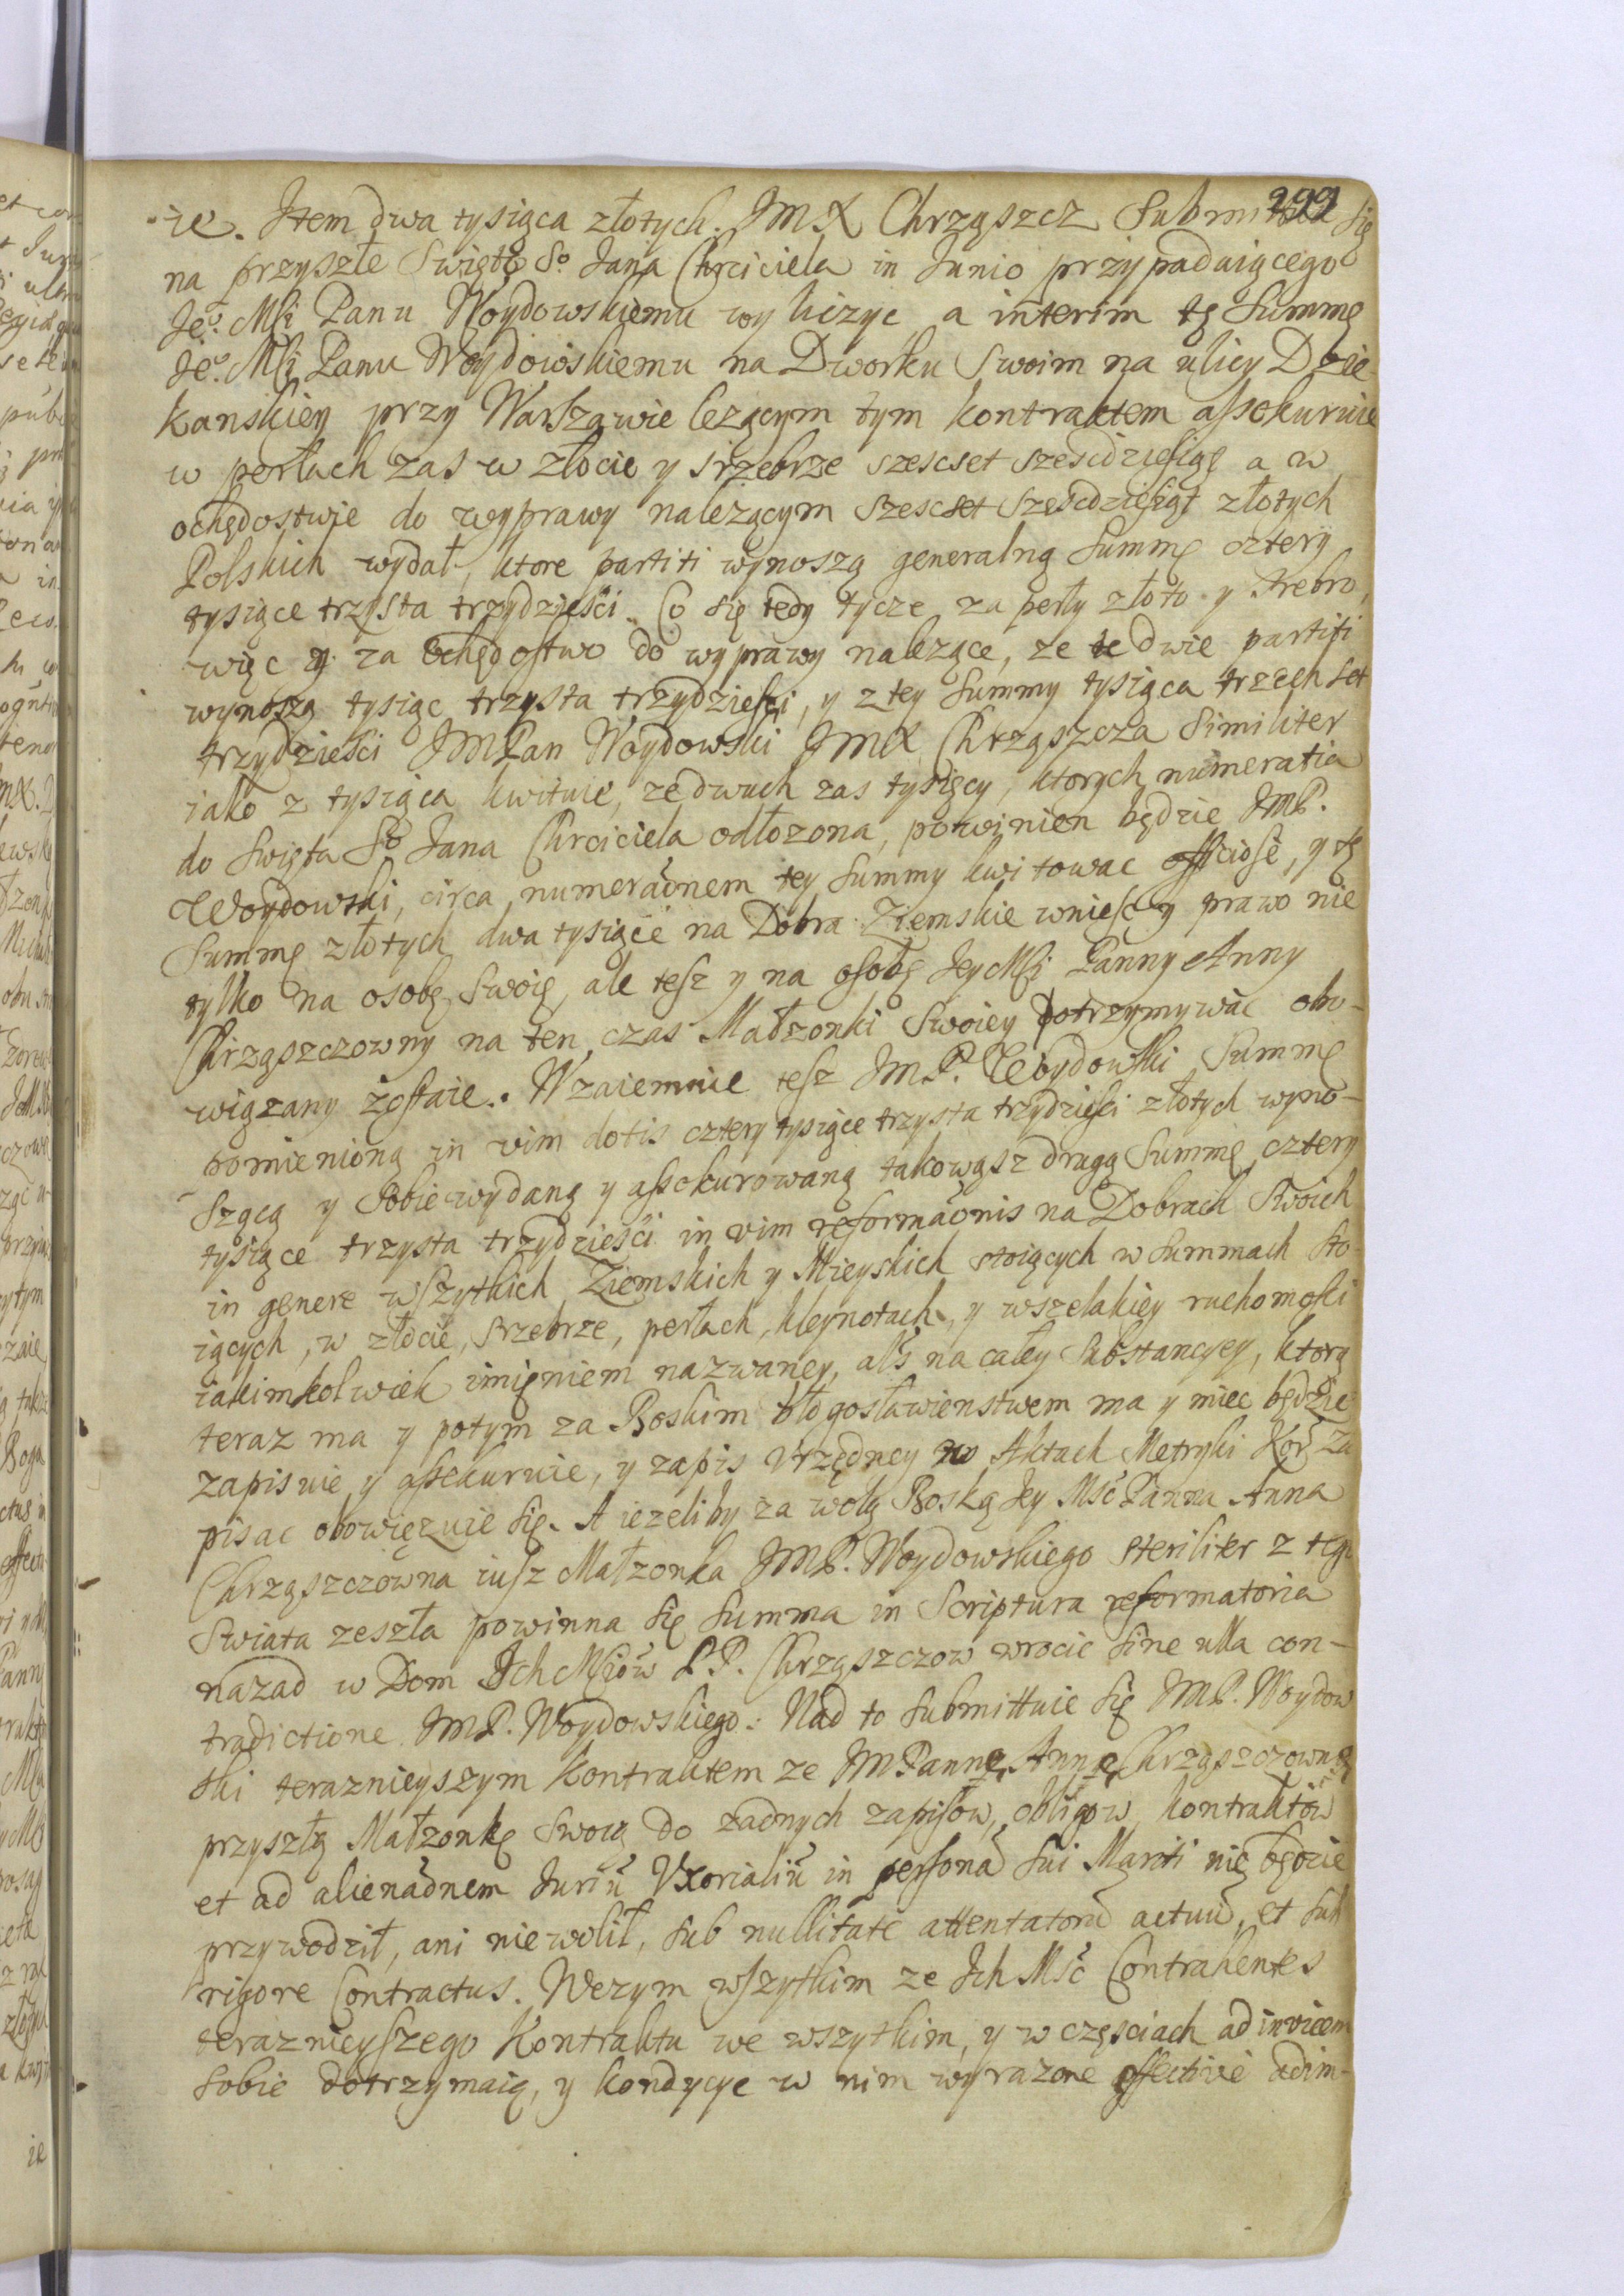 299
-ie. Item dwa tysiąca złotych JMX Chrząszcz Submittuie się
na przyszłe Swięto So Jana Chrciciela in Junio przypadaiącego
Jeo Mśi Panu Woydowskiemu wyliczyc, a interim tę Summę
Jeo Mśi Panu Woydowskiemu na Dworku Swoim na ulicy Dzie-
kanskiey przy Warszawie lezącym tym kontraktem assekuruie
w perłach zas w złocie y srzebrze szescset szescdziesiąt a w
ochędostwie do wyprawy nalezącym szescset szescdziesiąt złotych
Polskich wydał, ktore partiti wynoszą generalną Summę cztery
tysiące trzysta trzydziesci. Co się tedy tycze za perły złoto y srebro,
więc y za ochędostwo do wyprawy nalezące, ze te dwie partiti
wynoszą tysiąc trzysta trzydziesci, y z tey Summy tysiąca trzech set
trzydziesci JMPan Woydowski JMX Chrząszcza Similiter
iako z tysiąca kwituie, ze dwuch zas tysięcy, ktorych numeratia
do Swięta So Jana Chrciciela odłozona, powinien będzie JMP.
Woydowski, circa numeraonem tey Summy kwitowac officiose, y tę
Summę złotych dwa tysiące na Dobra Ziemskie wniesc y prawo nie
tylko na osobę Swoię, ale tesz y na osobę Jey Mśi Panny Anny
Chrząszczowny na ten czas Małzonki Swoiey otrzymywac obo-
wiązany zostaie. Wzaiemnie tesz JMP. Woydowski Summę
pomienioną in vim dotis cztery tysiące trzysta trzydziesci złotych wyno-
szącą y Sobie wydaną y assekurowaną takowąsz drugą Summę cztery
tysiące trzysta trzydziesci in vim reformaonis na Dobrach Swoich
in genere wszytkich Ziemskich y Mieyskich stoiących w Summach sto-
iących, w złocie, srzebrze, perłach, kleynotach, y wszelakiey ruchomosci
iakimkolwiek imieniem nazwaney, als na całey Substancyey, ktorą
teraz ma y potym za Boskim błogosławienstwem ma y miec będzie
zapisuie y assekuruie, y zapis Vrzędney w Aktach Metryki Kor. za
pisac obowięzuie się. A iezeliby za wolą Boską Jey Msc Panna Anna
Chrząszczowna iusz Małzonka JMP. Woydowskiego steriliter z tego
Swiata zeszła powinna się Summa in Scriptura reformatoria
nazad w Dom Ich Msciow P.P. Chrząszczow wrocic Sine ulla con-
tradictione JMP. Woydowskiego. Nad to Submittuie się JMP. Woydow
ski teraznieyszym Kontraktem ze JMPannę Annę Chrząszczownę
przyszłą Małzonkę Swoią do zadnych zapisow, obligow, kontraktow
et ad alienaonem Juriu Vxorialiu in persona Sui Mariti nie będzie
przywodził, ani niewolił, sub nullitate attentatoru actuu, et sub
rigore Contractus. Wczym wszytkim ze Ich Msc Contrahentes
teraznieyszego Kontraktu we wszytkim, y w częsciach ad invicem
Sobie dotrzymaią, y kondycye w nim wyrazone effective adim-